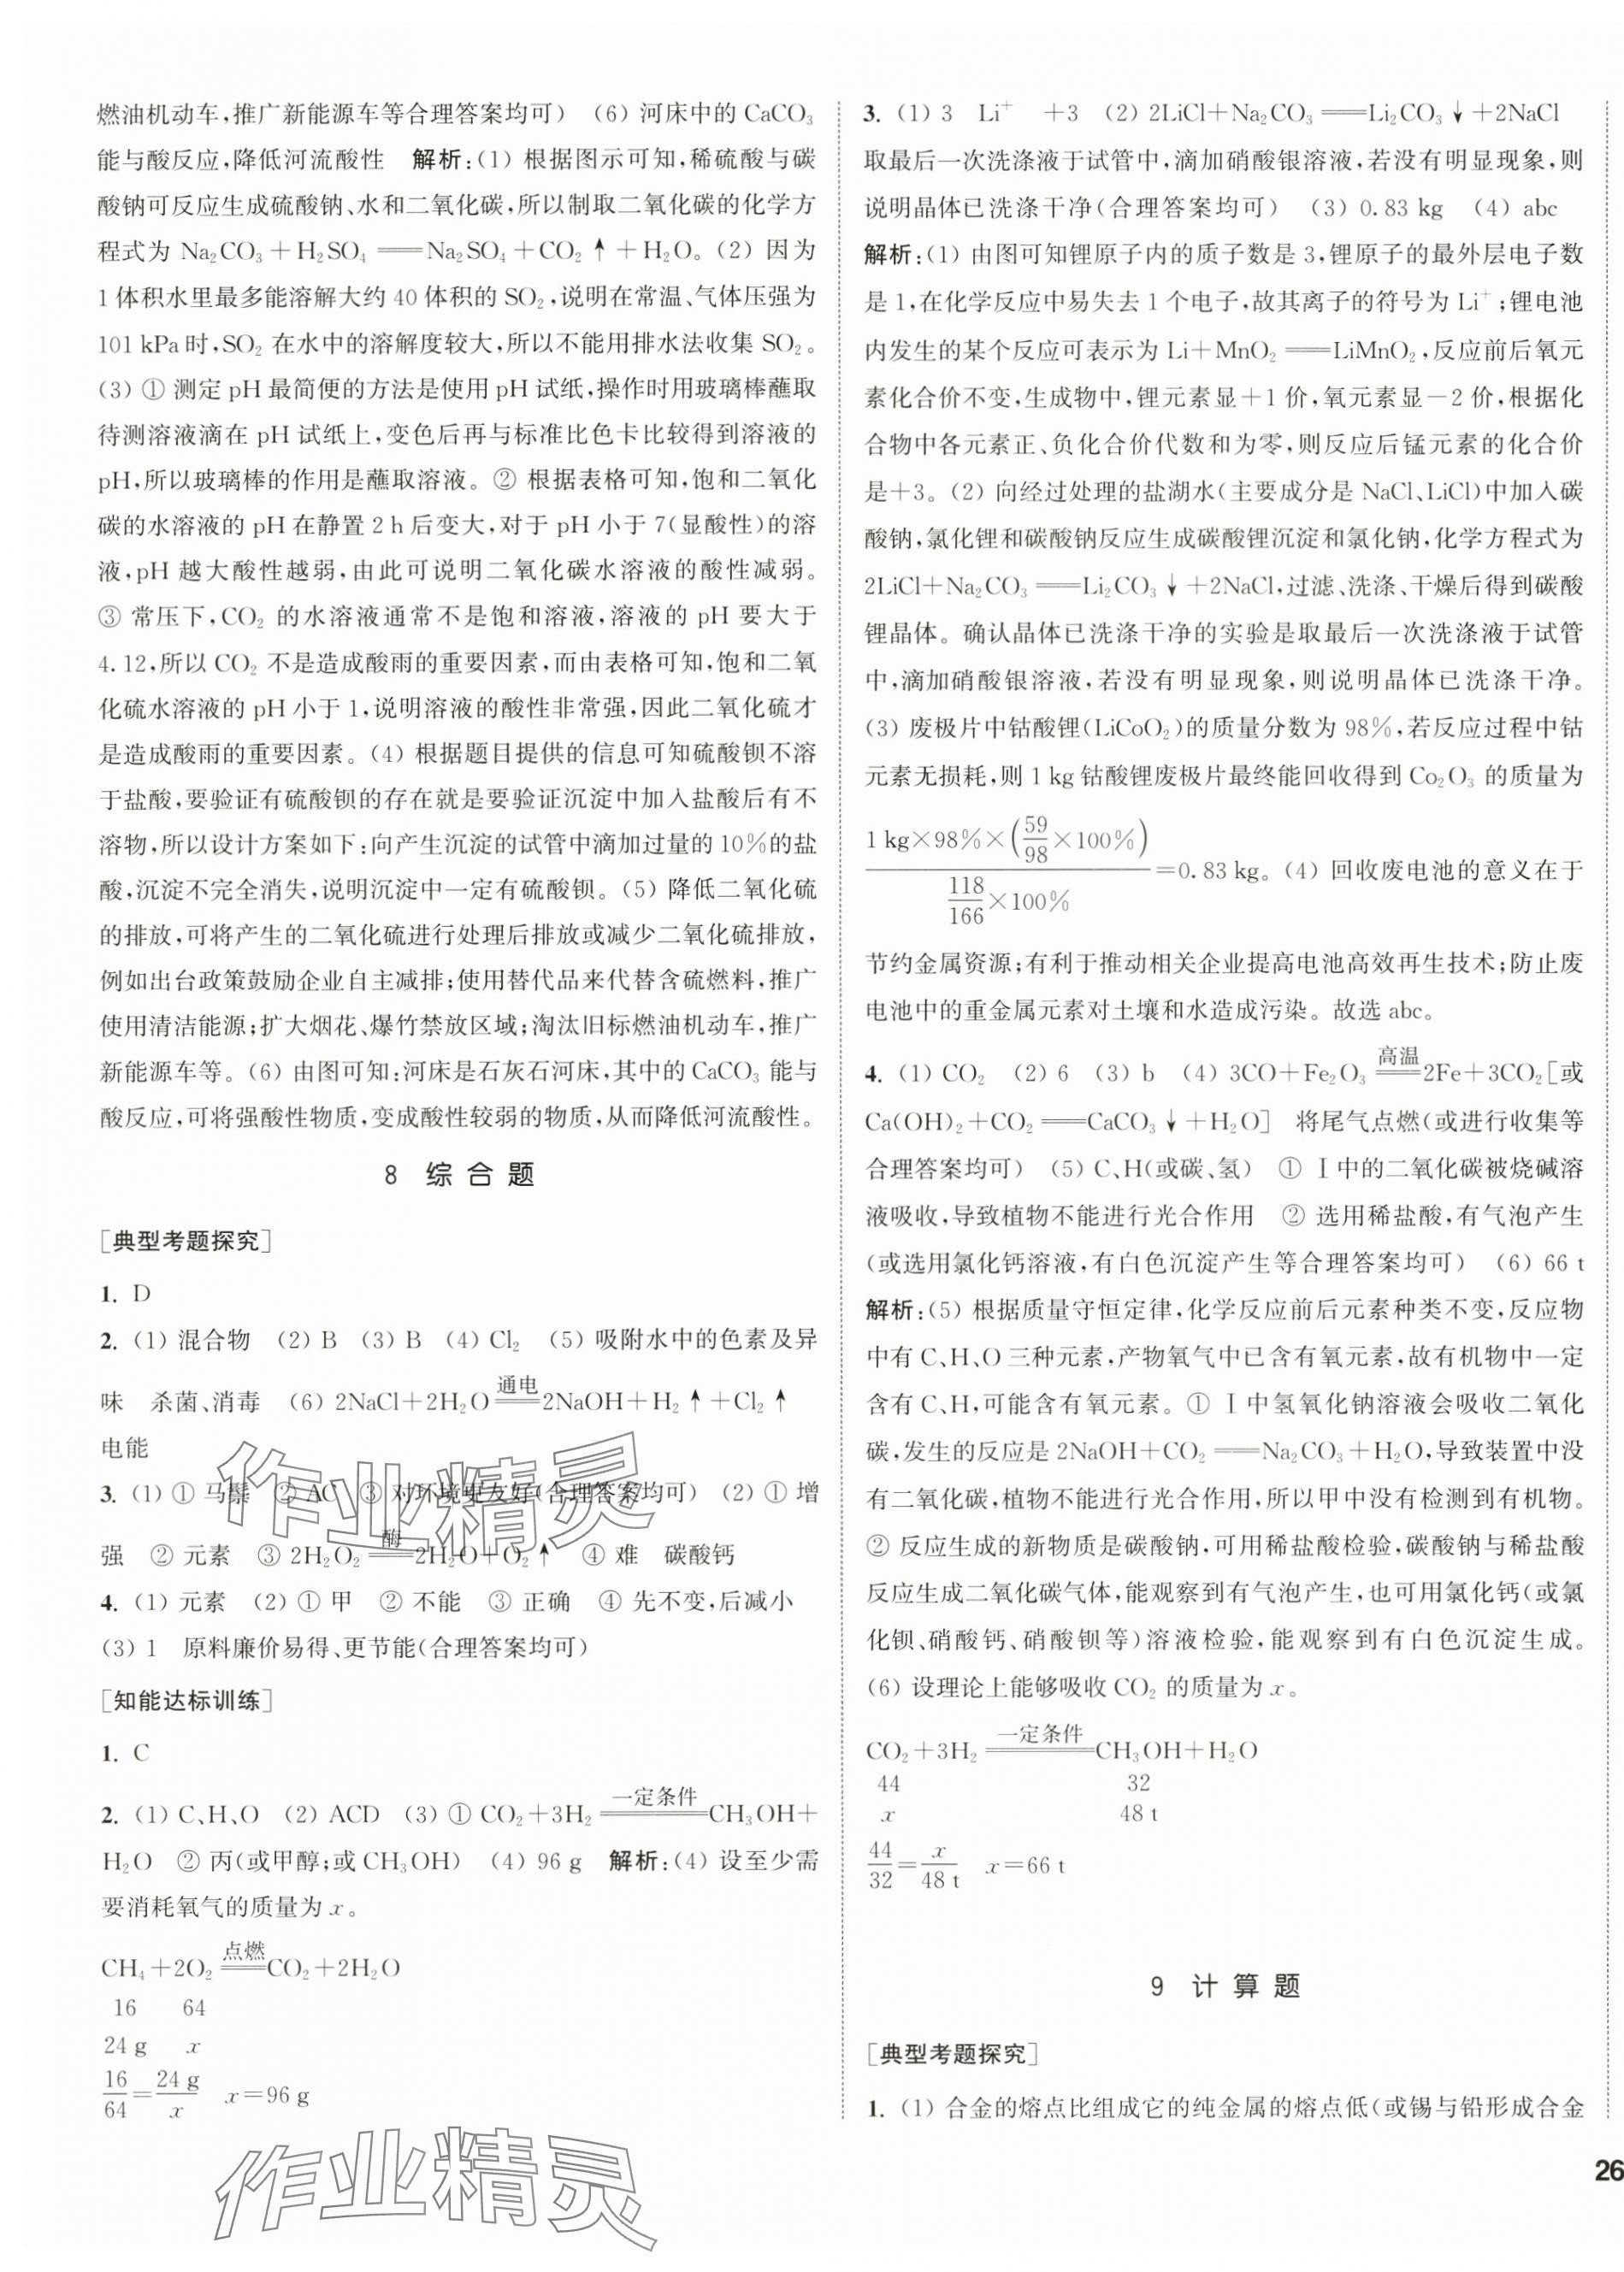 燃油机动车,推广新能源车等合理答案均可) (6) 河床中的 CaCO₃
能与酸反应,降低河流酸性 解析:(1) 根据图示可知,稀硫酸与碳
酸钠可反应生成硫酸钠、水和二氧化碳,所以制取二氧化碳的化学方
程式为 Na₂CO₃+H₂SO₄══Na₂SO₄+CO₂↑+H₂O。(2) 因为
1 体积水里最多能溶解大约 40 体积的 SO₂,说明在常温、气体压强为
101 kPa 时,SO₂ 在水中的溶解度较大,所以不能用排水法收集 SO₂。
(3) ① 测定 pH 最简便的方法是使用 pH 试纸,操作时用玻璃棒蘸取
待测溶液滴在 pH 试纸上,变色后再与标准比色卡比较得到溶液的
pH,所以玻璃棒的作用是蘸取溶液。② 根据表格可知,饱和二氧化
碳的水溶液的 pH 在静置 2 h 后变大,对于 pH 小于 7(显酸性)的溶
液,pH 越大酸性越弱,由此可说明二氧化碳水溶液的酸性减弱。
③ 常压下,CO₂ 的水溶液通常不是饱和溶液,溶液的 pH 要大于
4.12,所以 CO₂ 不是造成酸雨的重要因素,而由表格可知,饱和二氧
化硫水溶液的 pH 小于 1,说明溶液的酸性非常强,因此二氧化硫才
是造成酸雨的重要因素。(4) 根据题目提供的信息可知硫酸钡不溶
于盐酸,要验证有硫酸钡的存在就是要验证沉淀中加入盐酸后有不
溶物,所以设计方案如下:向产生沉淀的试管中滴加过量的 10%的盐
酸,沉淀不完全消失,说明沉淀中一定有硫酸钡。(5) 降低二氧化硫
的排放,可将产生的二氧化硫进行处理后排放或减少二氧化硫排放,
例如出台政策鼓励企业自主减排;使用替代品来代替含硫燃料,推广
使用清洁能源;扩大烟花、爆竹禁放区域;淘汰旧标燃油机动车,推广
新能源车等。(6) 由图可知:河床是石灰石河床,其中的 CaCO₃ 能与
酸反应,可将强酸性物质,变成酸性较弱的物质,从而降低河流酸性。
8 综合题
[典型考题探究]
1. D
2. (1) 混合物 (2) B (3) B (4) Cl₂ (5) 吸附水中的色素及异
味 杀菌、消毒 (6) 2NaCl+2H₂O 通电══ 2NaOH+H₂↑+Cl₂↑
电能
3. (1) ① 马鬃 ② AC ③ 对环境更友好(合理答案均可) (2) ① 增
强 ② 元素 ③ 2H₂O₂ 酶══ 2H₂O+O₂↑ ④ 难 碳酸钙
4. (1) 元素 (2) ① 甲 ② 不能 ③ 正确 ④ 先不变,后减小
(3) 1 原料廉价易得、更节能(合理答案均可)
[知能达标训练]
1. C
2. (1) C、H、O (2) ACD (3) ① CO₂+3H₂ 一定条件══ CH₃OH+
H₂O ② 丙(或甲醇;或 CH₃OH) (4) 96 g 解析:(4) 设至少需
要消耗氧气的质量为 x。
CH₄+2O₂ 点燃══ CO₂+2H₂O
16 64
24 g x
16/64=24 g/x x=96 g
3. (1) 3 Li⁺ +3 (2) 2LiCl+Na₂CO₃══Li₂CO₃↓+2NaCl
取最后一次洗涤液于试管中,滴加硝酸银溶液,若没有明显现象,则
说明晶体已洗涤干净(合理答案均可) (3) 0.83 kg (4) abc
解析:(1) 由图可知锂原子内的质子数是 3,锂原子的最外层电子数
是 1,在化学反应中易失去 1 个电子,故其离子的符号为 Li⁺;锂电池
内发生的某个反应可表示为 Li+MnO₂══LiMnO₂,反应前后氧元
素化合价不变,生成物中,锂元素显+1 价,氧元素显-2 价,根据化
合物中各元素正、负化合价代数和为零,则反应后锰元素的化合价
是+3。(2) 向经过处理的盐湖水(主要成分是 NaCl、LiCl)中加入碳
酸钠,氯化锂和碳酸钠反应生成碳酸锂沉淀和氯化钠,化学方程式为
2LiCl+Na₂CO₃══Li₂CO₃↓+2NaCl,过滤、洗涤、干燥后得到碳酸
锂晶体。确认晶体已洗涤干净的实验是取最后一次洗涤液于试管
中,滴加硝酸银溶液,若没有明显现象,则说明晶体已洗涤干净。
(3) 废极片中钴酸锂(LiCoO₂)的质量分数为 98%,若反应过程中钴
元素无损耗,则 1 kg 钴酸锂废极片最终能回收得到 Co₂O₃ 的质量为
1 kg×98%×(59/98×100%)
/(118/166×100%)=0.83 kg。(4) 回收废电池的意义在于
节约金属资源;有利于推动相关企业提高电池高效再生技术;防止废
电池中的重金属元素对土壤和水造成污染。故选 abc。
4. (1) CO₂ (2) 6 (3) b (4) 3CO+Fe₂O₃ 高温══ 2Fe+3CO₂[或
Ca(OH)₂+CO₂══CaCO₃↓+H₂O] 将尾气点燃(或进行收集等
合理答案均可) (5) C、H(或碳、氢) ① Ⅰ中的二氧化碳被烧碱溶
液吸收,导致植物不能进行光合作用 ② 选用稀盐酸,有气泡产生
(或选用氯化钙溶液,有白色沉淀产生等合理答案均可) (6) 66 t
解析:(5) 根据质量守恒定律,化学反应前后元素种类不变,反应物
中有 C、H、O 三种元素,产物氧气中已含有氧元素,故有机物中一定
含有 C、H,可能含有氧元素。① Ⅰ中氢氧化钠溶液会吸收二氧化
碳,发生的反应是 2NaOH+CO₂══Na₂CO₃+H₂O,导致装置中没
有二氧化碳,植物不能进行光合作用,所以甲中没有检测到有机物。
② 反应生成的新物质是碳酸钠,可用稀盐酸检验,碳酸钠与稀盐酸
反应生成二氧化碳气体,能观察到有气泡产生,也可用氯化钙(或氯
化钡、硝酸钙、硝酸钡等)溶液检验,能观察到有白色沉淀生成。
(6) 设理论上能够吸收 CO₂ 的质量为 x。
CO₂+3H₂ 一定条件══ CH₃OH+H₂O
44 32
x 48 t
44/32=x/48 t x=66 t
9 计算题
[典型考题探究]
1. (1) 合金的熔点比组成它的纯金属的熔点低(或锡与铅形成合金
26
作业精灵
作业精灵